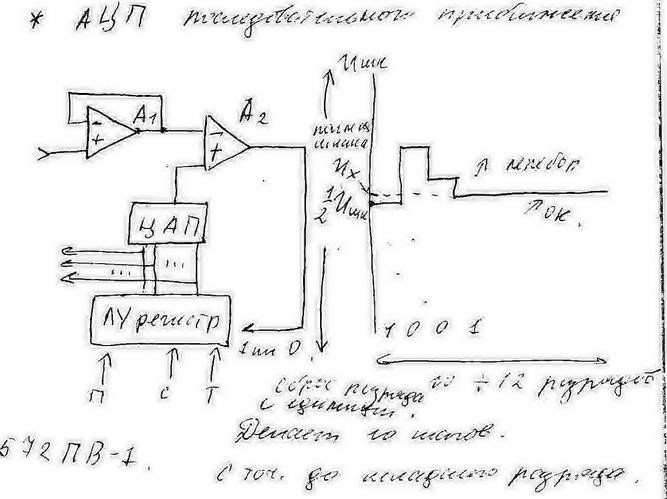 * АЦП последовательного приближения
Uшк
A1
A2
полная шкала
Ux
1/2 Uшк
↑ перебор
↑ ок.
ЦАП
...
...
ЛУ регистр
1 или 0.
1 0 0 1
П С Т
сброс разряда
10 ÷ 12 разрядов
с единицы.
Делает 10 шагов.
572ПВ-1.
с точ. до младшего разряда.